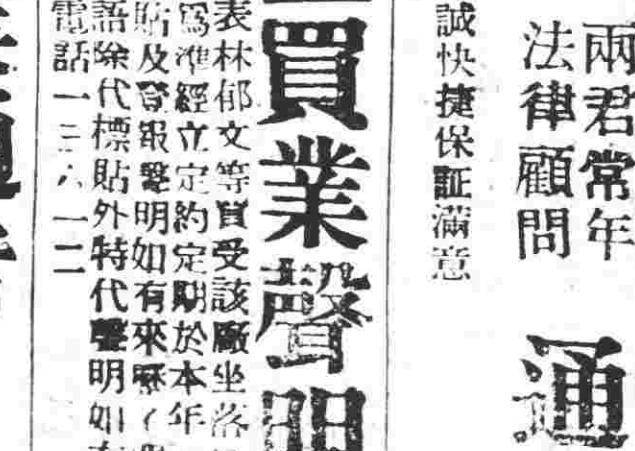 兩君常年
法律顧問
通
誠快捷保証滿意
買業聲明
表林郁文等買受該廠坐落
爲准經立定約定期於本年
貼及登報聲明如有來歷
語除代標貼外特代聲明如有
電話一三六一二